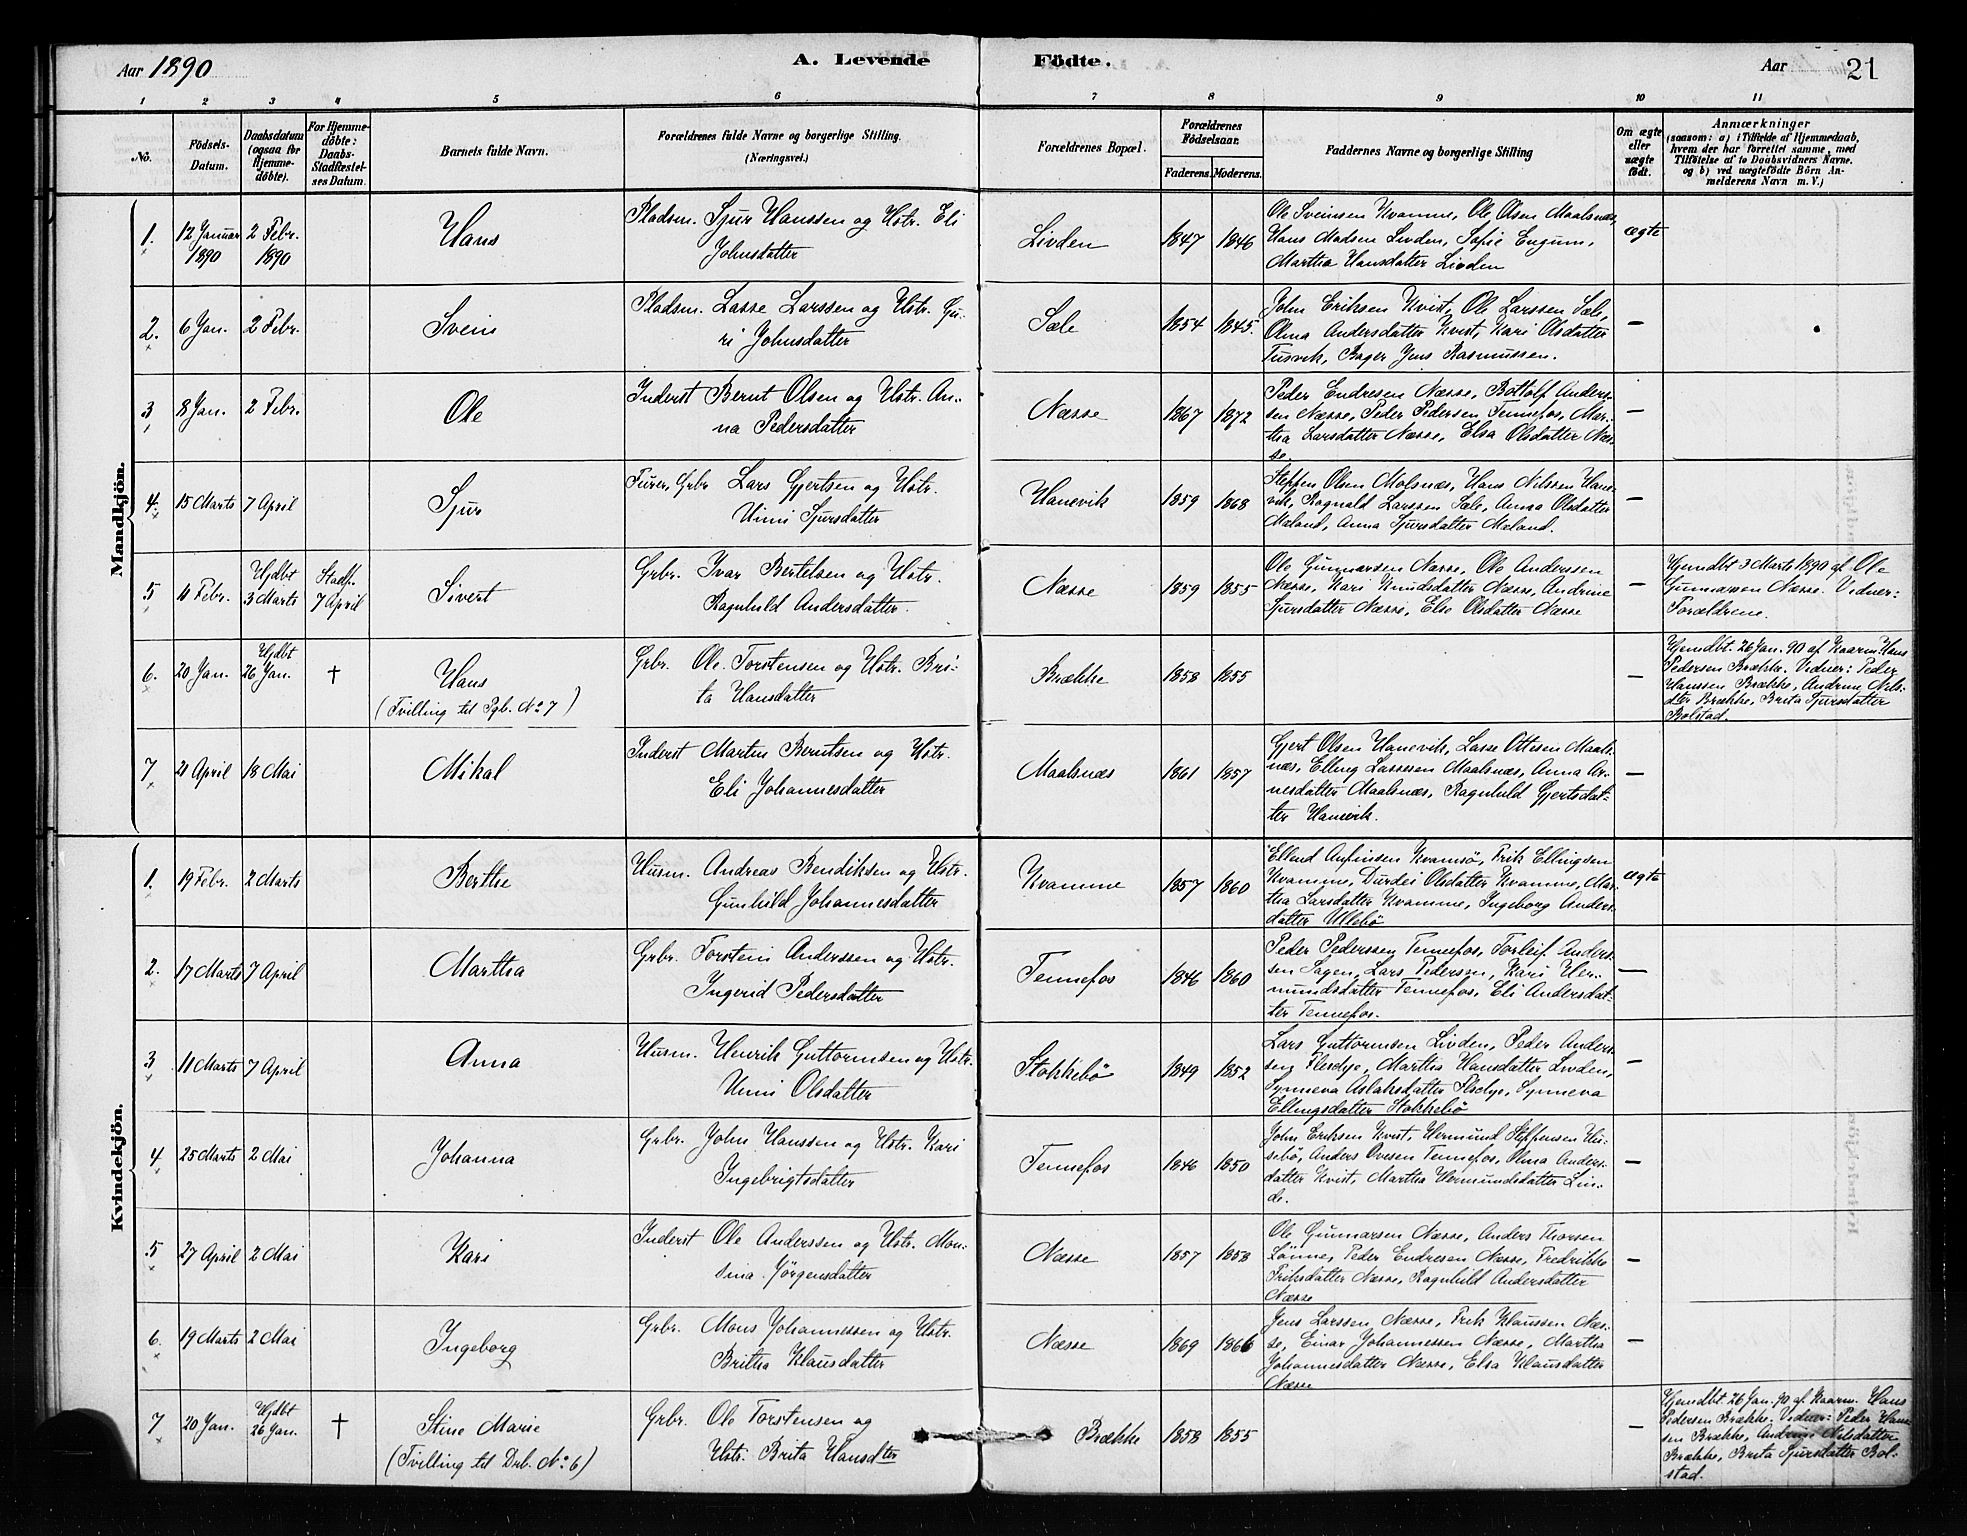 Aar 1890
A. Levende Födte.
Aar
21
1 2 3 4 5 6 7 8 9 10 11
No.
Födsels-Datum.
Daabsdatum (ogsaa for Hjemme-döbte).
For Hjemme-döbte: Daabs-Stadfæstel-ses Datum.
Barnets fulde Navn.
Forældrenes fulde Navne og borgerlige Stilling. (Næringsvei.)
Forældrenes Bopæl.
Forældrenes Födselsaar.
Faderens. Moderens.
Faddernes Navne og borgerlige Stilling
Om ægte eller uægte födt.
Anmærkninger
(saasom: a) i Tilfælde af Hjemmedaab, hvem der har forrettet samme, med Tilföielse af to Daabsvidners Navne. og b) ved uægtefödte Börn An-melderens Navn m. V.)
Mandkjön.
1. 12 Januar 1890 2 Febr. 1890 Hans
Pladsm. Sjur Hanssen og Hstr. Eli
Johnsdatter
Livden 1847 1846
Ole Sveinsen Kvamme, Ole Olsen Maalsnæs,
Hans Madsen Livden, Sofie Engum,
Martha Hansdatter Livden
ægte
2. 6 Jan. 2 Febr. Svein
Pladsm. Lasse Larssen og Hstr. Gu-
ri Johnsdatter
Sæle 1854 1845.
John Eriksen Kvist, Ole Larssen Sæle,
Olma Andersdatter Kvist, Kari Olsdatter
Tusvik, Bager Jens Rasmussen.
—
3 8 Jan. 2 Febr. Ole
Inderst Bernt Olsen og Hstr. An-
na Pedersdatter
Næsse 1867 1872
Peder Endresen Næsse, Bottolf Anders-
sen Næsse, Peder Pedersen Tennefos, Mar-
tha Larsdatter Næsse, Elsa Olsdatter Næs-
se.
—
4. 15 Marts 7 April Sjur
Furer, Grbr Lars Gjertsen og Hstr.
Unni Sjursdatter
Hanevik 1859 1868
Steffen Olsen Molsnæs, Hans Nilssen Hane-
vik, Ragnald Larssen Sæle, Anna Olsdatter
Mæland, Anna Sjursdatter Mæland.
—
5 11 Febr. Hjdbt 3 Marts Stadf. 7 April Sivert
Grbr. Ivar Bertelsen og Hstr.
Ragnhild Andersdatter.
Næsse 1859 1855
Ole Gunnarsen Næsse, Ole Anderssen
Næsse, Kari Knudsdatter Næsse, Andrine
Sjursdatter Næsse, Else Olsdatter Næsse
—
Hjemdbt 3 Marts 1890 af Ole
Gunnarsen Næsse. Vidner:
Forældrene.
6. 20 Jan. Hjdbt 26 Jan. † Hans
(Tvilling til Pgb. No 7)
Grbr. Ole Torstensen og Hstr. Bri-
ta Hansdatter
Brække 1858 1855
—
Hjemdbt. 26 Jan. 90 af Kaarm Hans
Pedersen Brække. Vidner: Peder
Hanssen Brække, Andrine Nils-
dtr Brække, Brita Sjursdatter
Bolstad.
7 21 April 18 Mai Mikal
Inderst Martin Berntsen og Hstr.
Eli Johannesdatter
Maalsnæs 1861 1857
Gjert Olsen Hanevik, Lasse Ottesen Maals-
næs, Elling Lassesen Maalsnæs, Anna Ar-
nesdatter Maalsnæs, Ragnhild Gjertsdat-
ter Hanevik.
—
Kvindekjön.
1. 19 Febr. 2 Marts Berthe
Husm. Andreas Bendiksen og Hstr.
Gunhild Johannesdatter
Kvamme 1857 1860
Ellend Anfinsen Kvamsö, Erik Ellingsen
Kvamme, Durdei Olsdatter Kvamme, Mar-
tha Larsdatter Kvamme, Ingeborg Anders-
datter Ullebö
ægte
2. 17 Marts 7 April Martha
Grbr. Torstein Anderssen og Hstr.
Ingerid Pedersdatter
Tennefos 1846 1860
Peder Pederssen Tennefos, Torleif Anders-
sen Sagen, Lars Pedersen, Kari Her-
mundsdatter Tennefos, Eli Andersdat-
ter Tennefos.
—
3 11 Marts 7 April Anna
Husm. Henrik Guttormsen og Hstr.
Unni Olsdatter
Stokkebö 1849 1852
Lars Guttormsen Livden, Peder Anders-
sen Flesdye, Martha Hansdatter Livden,
Synneva Aslaksdatter Flesdye, Synneva
Ellingsdatter Stokkebö
—
4 25 Marts 2 Mai Johanna
Grbr. John Hanssen og Hstr. Kari
Ingebrigtsdatter
Tennefos 1846 1850
John Eriksen Kvist, Hermund Steffensen Hu-
sebö, Anders Ovesen Tennefos, Olma Anders-
datter Kvist, Martha Hermundsdatter Lin-
de.
—
5 27 April 2 Mai Kari
Inderst Ole Anderssen og Hstr. Mon-
sina Jörgensdatter
Næsse 1857 1858
Ole Gunnarsen Næsse, Anders Thorsen
Lönne, Peder Endresen Næsse, Fredrikke
Eriksdatter Næsse, Ragnhild Andersdatter
Næsse
—
6. 19 Marts 2 Mai Ingeborg
Grbr. Mons Johannessen og Hstr.
Britha Klausdatter
Næsse 1869 1866
Jens Larssen Næsse, Erik Klaussen Næs-
se, Einar Johannessen Næsse, Martha
Johannesdatter Næsse, Elsa Klausdatter
Næsse
—
7 20 Jan. Hjdbt 26 Jan. † Stine Marie
(Tvilling til Drb. No 6)
Grbr. Ole Torstensen og
Hstr. Brita Hansdter
Brække 1858 1855
—
Hjemdbt. 26 Jan. 90 af Kaarm. Hans
Pedersen Brække. Vidner: Peder Hans-
sen Brække, Andrine Nilsdatter
Brække, Brita Sjursdatter Bol-
stad.